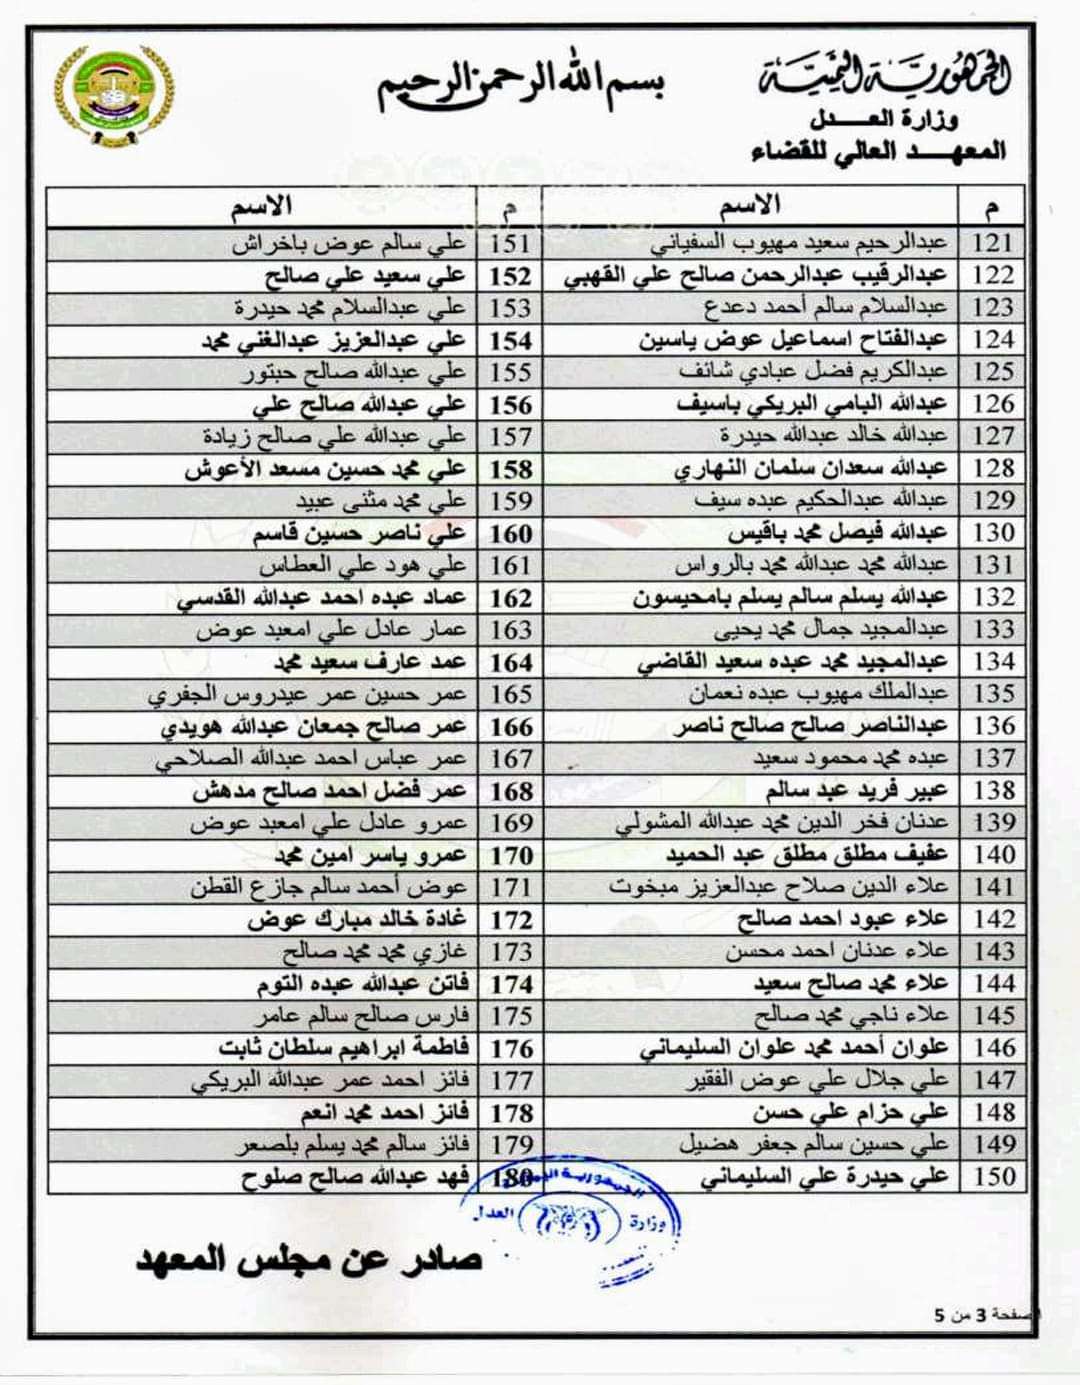 الجمهورية اليمنية
وزارة العدل
المعهد العالي للقضاء
بسم الله الرحمن الرحيم
م الاسم م الاسم
121 عبدالرحيم سعيد مهيوب السفياني 151 علي سالم عوض باخراش
122 عبدالرقيب عبدالرحمن صالح علي القهبي 152 علي سعيد علي صالح
123 عبدالسلام سالم أحمد دعدع 153 علي عبدالسلام محمد حيدرة
124 عبدالفتاح اسماعيل عوض ياسين 154 علي عبدالعزيز عبدالغني محمد
125 عبدالكريم فضل عبادي شائف 155 علي عبدالله صالح حبتور
126 عبدالله البامي البريكي باسيف 156 علي عبدالله صالح علي
127 عبدالله خالد عبدالله حيدرة 157 علي عبدالله علي صالح زيادة
128 عبدالله سعدان سلمان النهاري 158 علي محمد حسين مسعد الأعوش
129 عبدالله عبدالحكيم عبده سيف 159 علي محمد مثنى عبيد
130 عبدالله فيصل محمد باقيس 160 علي ناصر حسين قاسم
131 عبدالله محمد عبدالله محمد بالرواس 161 علي هود علي العطاس
132 عبدالله يسلم سالم يسلم بامحيسون 162 عماد عبده احمد عبدالله القدسي
133 عبدالمجيد جمال محمد يحيى 163 عمار عادل علي امعبد عوض
134 عبدالمجيد محمد عبده سعيد القاضي 164 عمد عارف سعيد محمد
135 عبدالملك مهيوب عبده نعمان 165 عمر حسين عمر عيدروس الجفري
136 عبدالناصر صالح صالح ناصر 166 عمر صالح جمعان عبدالله هويدي
137 عبده محمد محمود سعيد 167 عمر عباس احمد عبدالله الصلاحي
138 عبير فريد عبد سالم 168 عمر فضل احمد صالح مدهش
139 عدنان فخر الدين محمد عبدالله المشولي 169 عمرو عادل علي امعبد عوض
140 عفيف مطلق مطلق عبد الحميد 170 عمرو ياسر امين محمد
141 علاء الدين صلاح عبدالعزيز مبخوت 171 عوض أحمد سالم جازع القطن
142 علاء عبود احمد صالح 172 غادة خالد مبارك عوض
143 علاء عدنان احمد محسن 173 غازي محمد محمد صالح
144 علاء محمد صالح سعيد 174 فاتن عبدالله عبده التوم
145 علاء ناجي محمد صالح 175 فارس صالح سالم عامر
146 علوان أحمد محمد علوان السليماني 176 فاطمة ابراهيم سلطان ثابت
147 علي جلال علي عوض الفقير 177 فائز احمد عمر عبدالله البريكي
148 علي حزام علي حسن 178 فائز احمد محمد انعم
149 علي حسين سالم جعفر هضيل 179 فائز سالم محمد يسلم بلصعر
150 علي حيدرة علي السليماني 180 فهد عبدالله صالح صلوح
الجمهورية اليمنية
وزارة العدل
صادر عن مجلس المعهد
صفحة 3 من 5